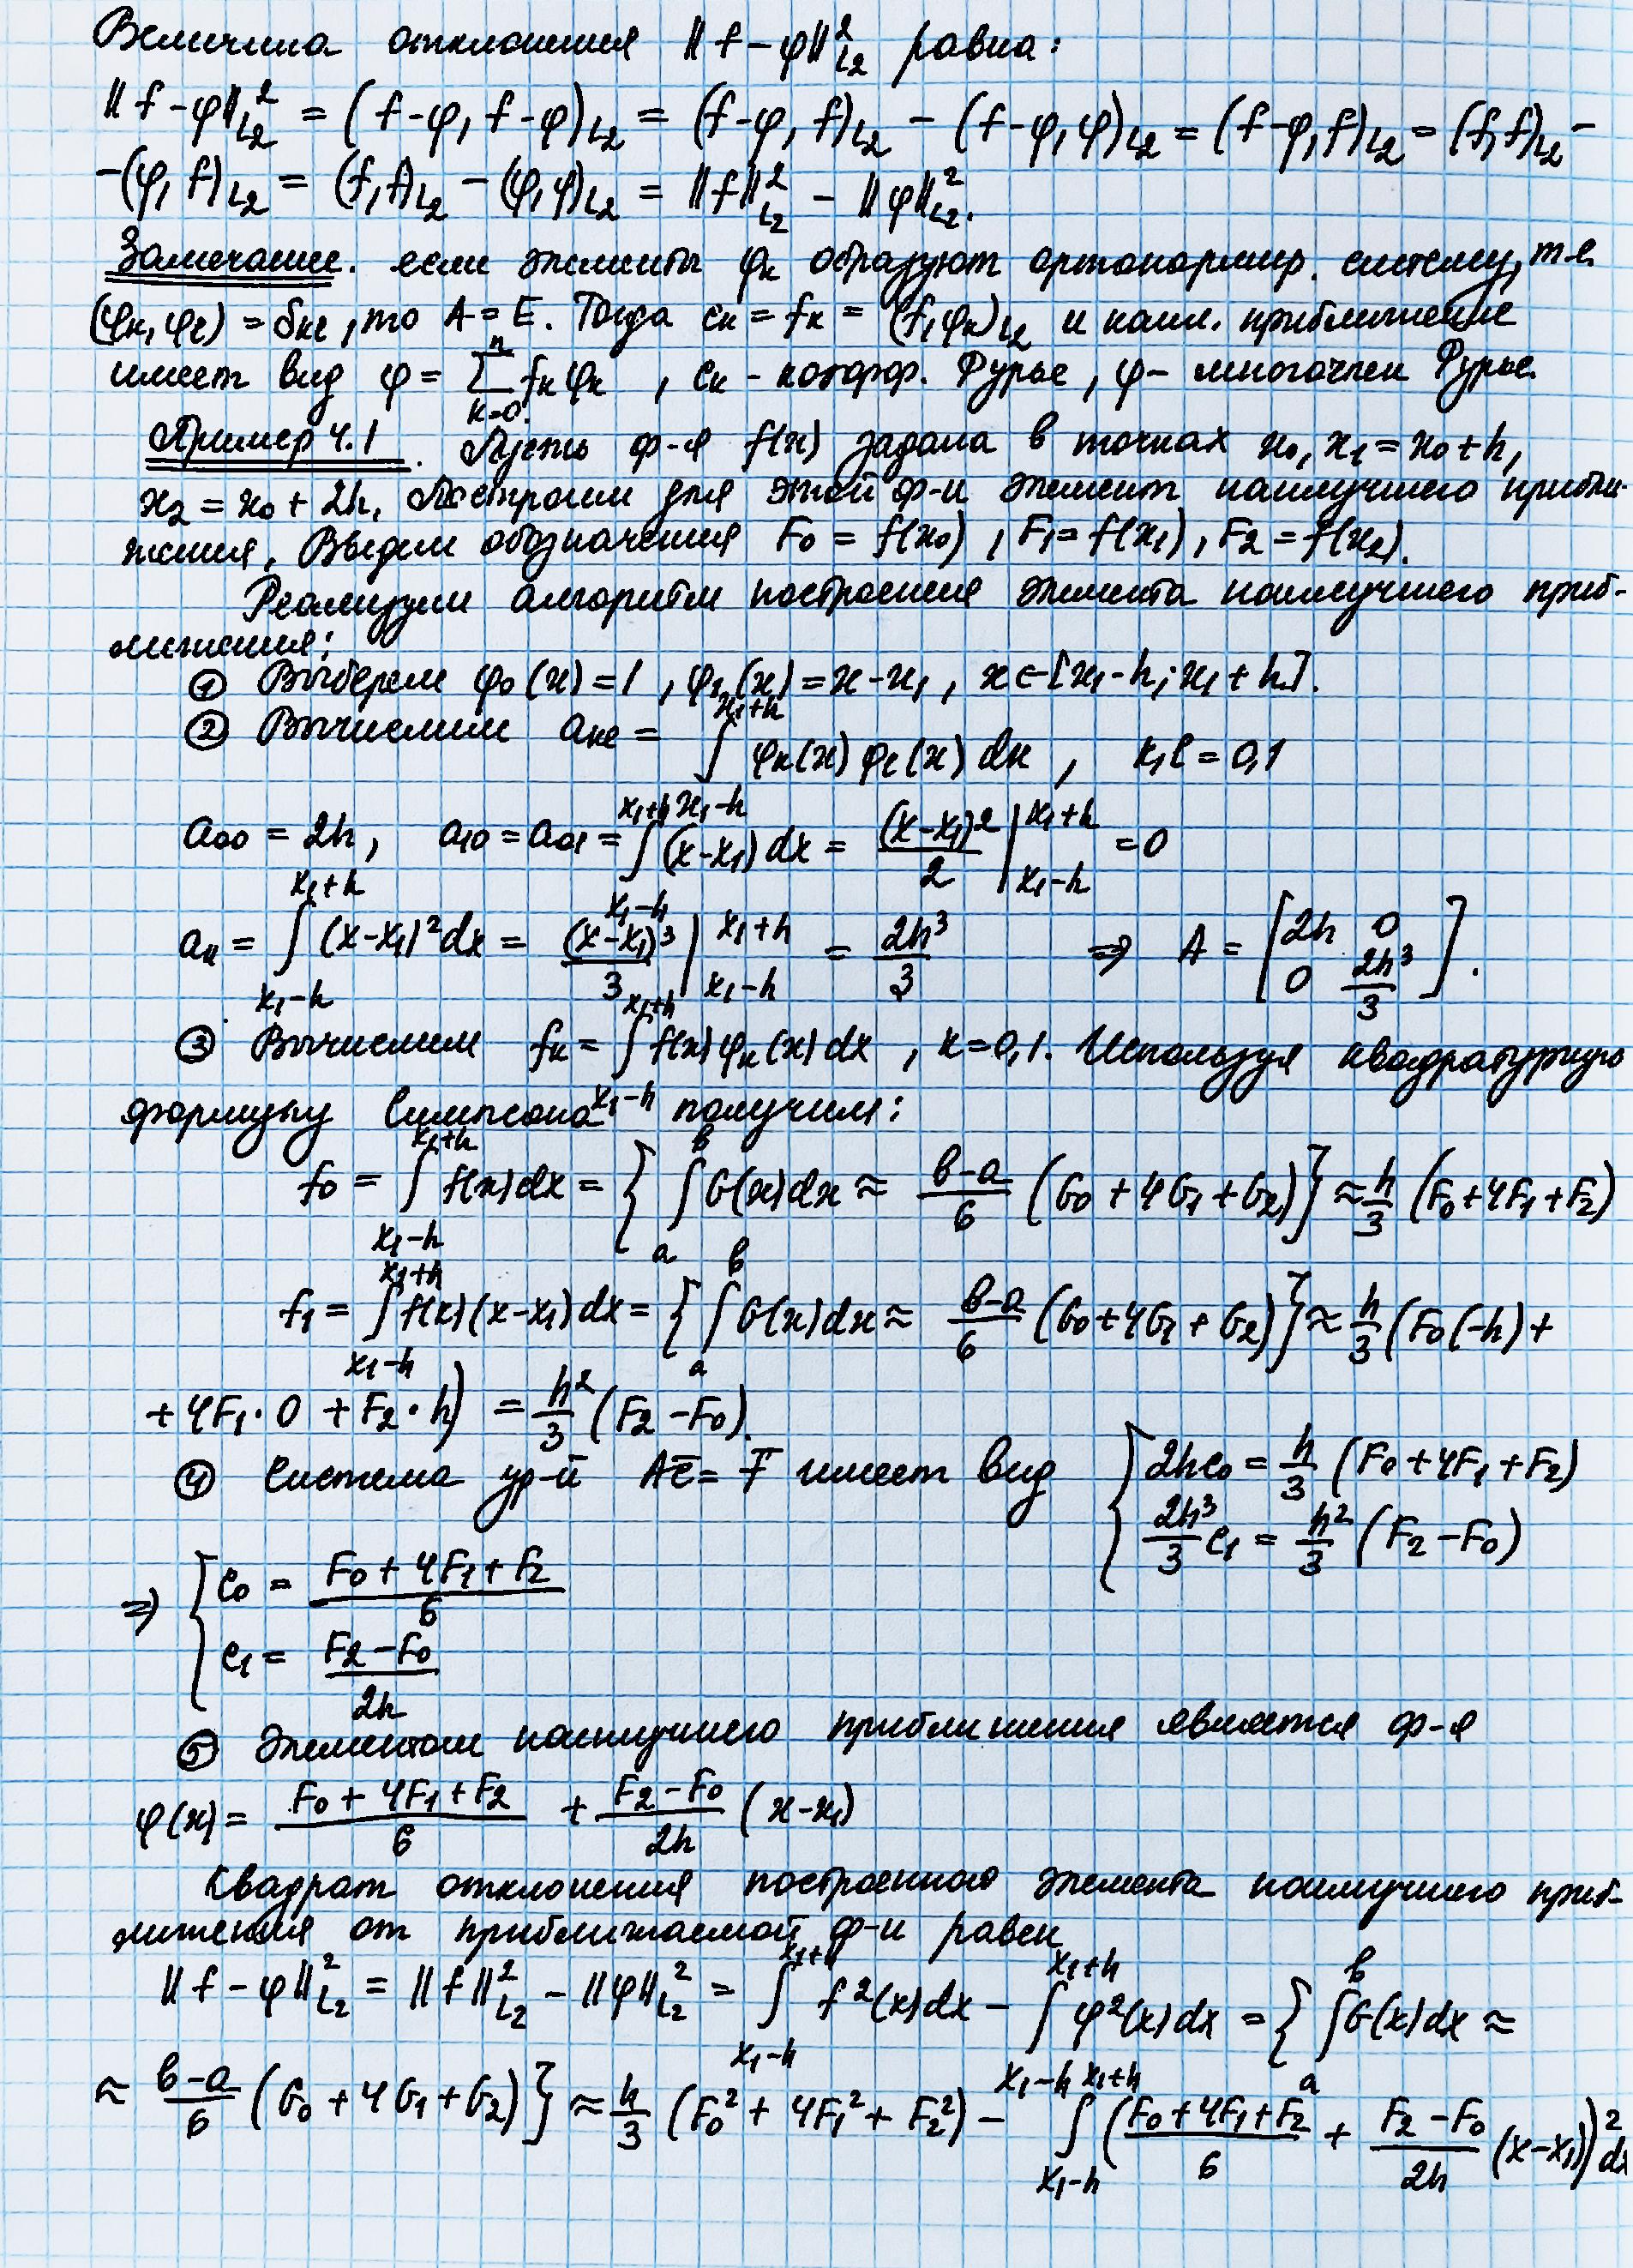 Величина отклонения ‖f-φ‖²_L₂ равна:
‖f-φ‖²_L₂ = (f-φ, f-φ)_L₂ = (f-φ, f)_L₂ - (f-φ, φ)_L₂ = (f-φ, f)_L₂ = (f, f)_L₂ -
-(φ, f)_L₂ = (f, f)_L₂ - (φ, φ)_L₂ = ‖f‖²_L₂ - ‖φ‖²_L₂.
Замечание. если элементы φₖ образуют ортонормир. систему, т.е.
(φₖ, φₗ) = δₖₗ, то A = E. Тогда cₖ = fₖ = (f, φₖ)_L₂ и наил. приближение
имеет вид φ = ∑_{k=0}^{n} fₖ φₖ , cₖ - коэфф. Фурье, φ - многочлен Фурье.
Пример 4.1. Пусть ф-я f(x) задана в точках x₀, x₁ = x₀ + h,
x₂ = x₀ + 2h. Построим для этой ф-и элемент наилучшего прибли-
жения. Введем обозначения F₀ = f(x₀), F₁ = f(x₁), F₂ = f(x₂).
Реализуем алгоритм построения элемента наилучшего приб-
лижения:
① Выберем φ₀(x) = 1, φ₁(x) = x - x₁, x ∈ [x₁-h; x₁+h].
② Вычислим aₖₗ = ∫_{x₁-h}^{x₁+h} φₖ(x) φₗ(x) dx, k,l = 0,1
a₀₀ = 2h, a₁₀ = a₀₁ = ∫_{x₁-h}^{x₁+h} (x-x₁) dx = (x-x₁)²/2 |_{x₁-h}^{x₁+h} = 0
a₁₁ = ∫_{x₁-h}^{x₁+h} (x-x₁)² dx = (x-x₁)³/3 |_{x₁-h}^{x₁+h} = 2h³/3 ⇒ A = [2h 0; 0 2h³/3].
③ Вычислим fₖ = ∫_{x₁-h}^{x₁+h} f(x) φₖ(x) dx, k=0,1. Используя квадратурную
формулу Симпсона получим:
f₀ = ∫_{x₁-h}^{x₁+h} f(x) dx = {∫_a^b G(x) dx ≈ (b-a)/6 (G₀ + 4G₁ + G₂)} ≈ h/3 (F₀ + 4F₁ + F₂)
f₁ = ∫_{x₁-h}^{x₁+h} f(x)(x-x₁) dx = {∫_a^b G(x) dx ≈ (b-a)/6 (G₀ + 4G₁ + G₂)} ≈ h/3 (F₀(-h) +
+ 4F₁·0 + F₂·h) = h²/3 (F₂ - F₀).
④ Система ур-й Ac̄ = f̄ имеет вид { 2hc₀ = h/3 (F₀ + 4F₁ + F₂)
2h³/3 c₁ = h²/3 (F₂ - F₀)
⇒ { c₀ = (F₀ + 4F₁ + F₂)/6
c₁ = (F₂ - F₀)/2h
⑤ Элементом наилучшего приближения является ф-я
φ(x) = (F₀ + 4F₁ + F₂)/6 + (F₂ - F₀)/2h (x - x₁)
Квадрат отклонения построенного элемента наилучшего приб-
лижения от приближаемой ф-и равен
‖f-φ‖²_L₂ = ‖f‖²_L₂ - ‖φ‖²_L₂ = ∫_{x₁-h}^{x₁+h} f²(x) dx - ∫_{x₁-h}^{x₁+h} φ²(x) dx = {∫_a^b G(x) dx ≈
≈ (b-a)/6 (G₀ + 4G₁ + G₂)} ≈ h/3 (F₀² + 4F₁² + F₂²) - ∫_{x₁-h}^{x₁+h} ((F₀ + 4F₁ + F₂)/6 + (F₂ - F₀)/2h (x - x₁))² dx